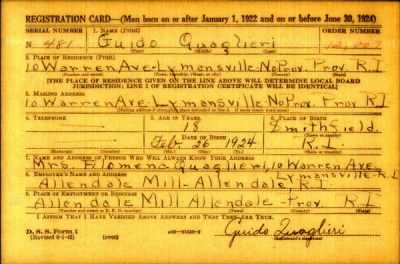 REGISTRATION CARD—(Men born on or after January 1, 1922 and on or before June 30, 1924)
SERIAL NUMBER 1. NAME (Print) ORDER NUMBER
N 481 Guido Quaglieri
2. PLACE OF RESIDENCE (Print)
10 Warren Ave. Lymansville-No Prov. Prov. R.I
(THE PLACE OF RESIDENCE GIVEN ON THE LINE ABOVE WILL DETERMINE LOCAL BOARD
JURISDICTION; LINE 2 OF REGISTRATION CERTIFICATE WILL BE IDENTICAL)
3. MAILING ADDRESS
10 Warren Ave. Lymansville-No Prov. Prov R I
4. TELEPHONE 5. AGE IN YEARS 6. PLACE OF BIRTH
18 Smithfield
DATE OF BIRTH
Feb. 26 1924 R.I.
7. NAME AND ADDRESS OF PERSON WHO WILL ALWAYS KNOW YOUR ADDRESS
Mrs. Filomena Quaglieri, 10 Warren Ave
Lymansville-R.I
8. EMPLOYER'S NAME AND ADDRESS
Allendale Mill-Allendale, R.I.
9. PLACE OF EMPLOYMENT OR BUSINESS
Allendale Mill Allendale-Prov R.I
I AFFIRM THAT I HAVE VERIFIED ABOVE ANSWERS AND THAT THEY ARE TRUE.
D. S. S. Form 1
(Revised 6-1-42) (over) Guido Quaglieri